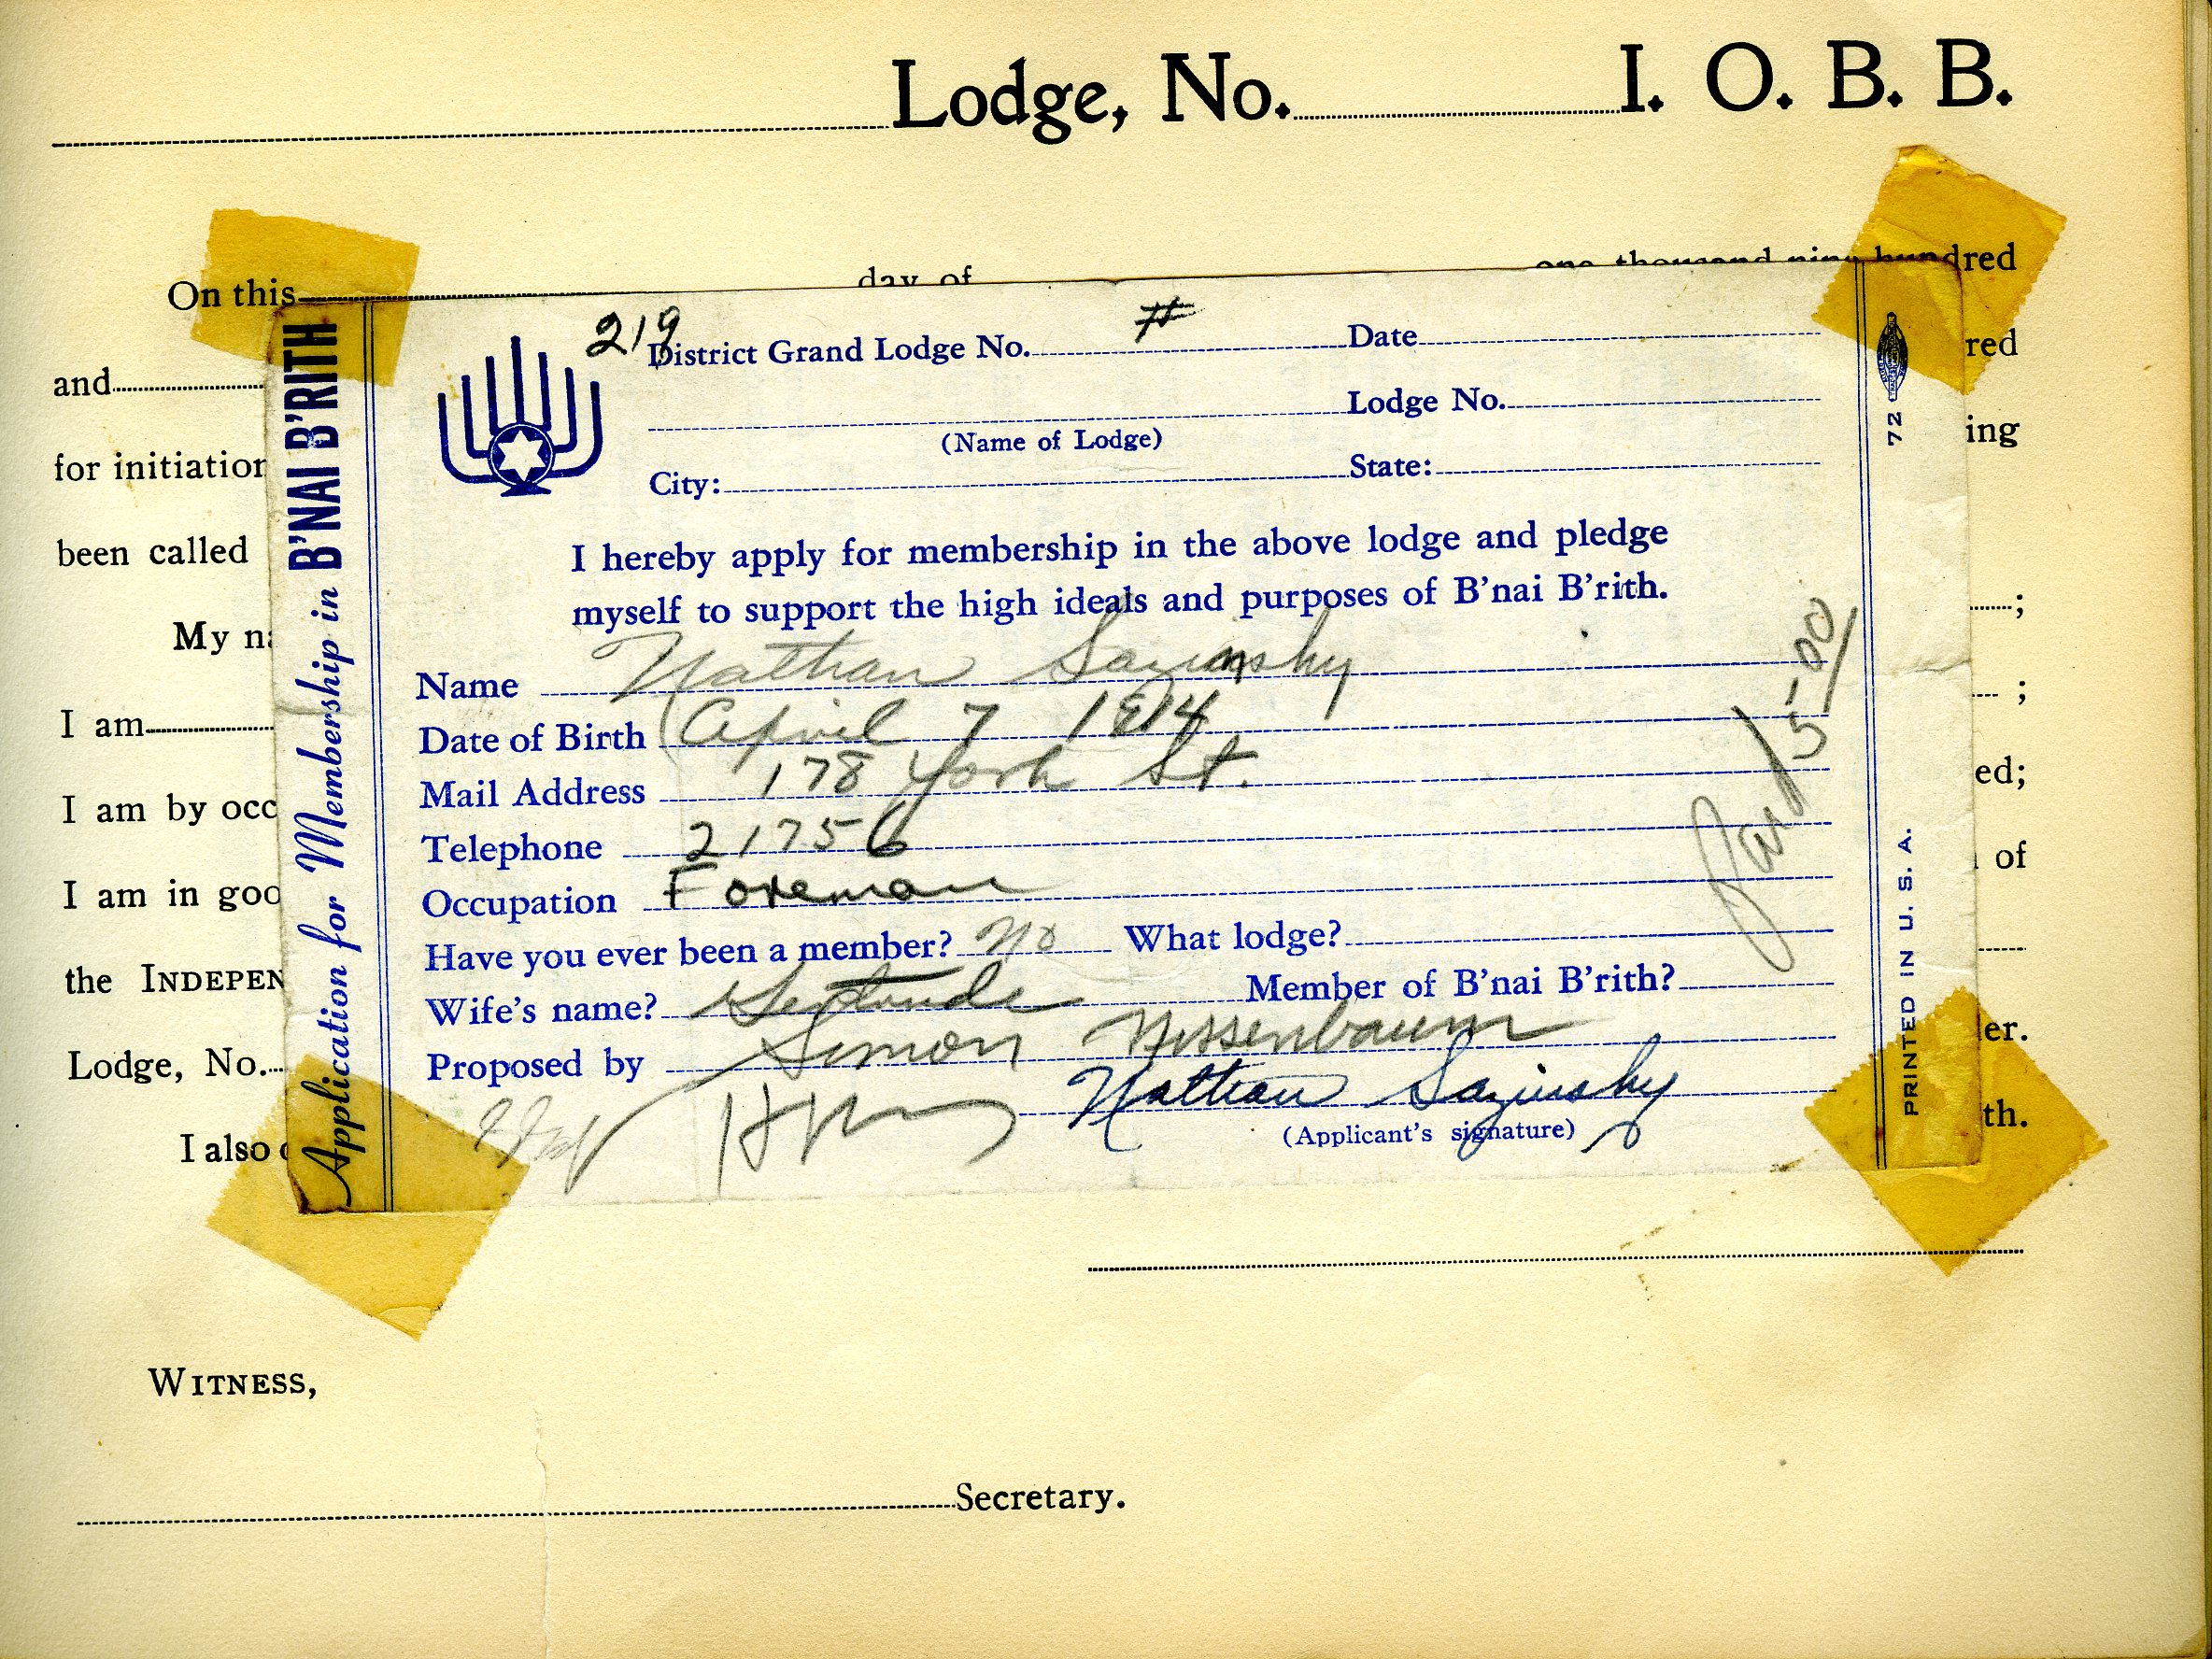 Lodge, No. I. O. B. B.
On this day of one thousand nine hundred
and red
for initiation ing
been called
My na ;
I am ;
I am by occ ed;
I am in goo of
the INDEPEN
Lodge, No. er.
I also th.
WITNESS,
Secretary.
Application for Membership in B'NAI B'RITH
219
District Grand Lodge No. Date
Lodge No.
(Name of Lodge)
City: State:
I hereby apply for membership in the above lodge and pledge
myself to support the high ideals and purposes of B'nai B'rith.
Name Nathan Sazinsky
Date of Birth April 7 1914
Mail Address 178 York St.
Telephone 21756
Occupation Foreman
Have you ever been a member? No What lodge?
Wife's name? Gertrude Member of B'nai B'rith?
Proposed by Simon Nissenbaum
Nathan Sazinsky
(Applicant's signature)
Paid 5.00
72
PRINTED IN U. S. A.